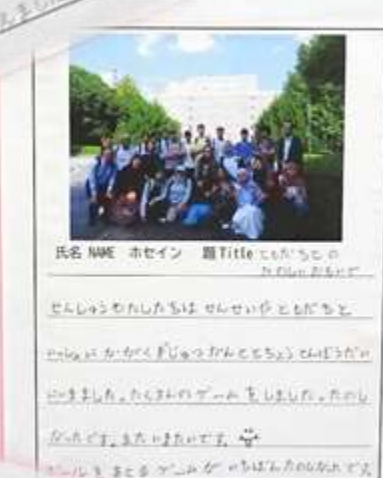 氏名 NAME ホセイン 題Title ともだちとの
たのしいおもいで
せんしゅうわたしたちは せんせいや ともだちと
いっしょに かがくぎじゅつかんと とちょうてんぼうだい
にいきました。たくさんの ゲームをしました。たのし
かったです。またいきたいです。
ボールを ゲームが いちばんたのしかったです